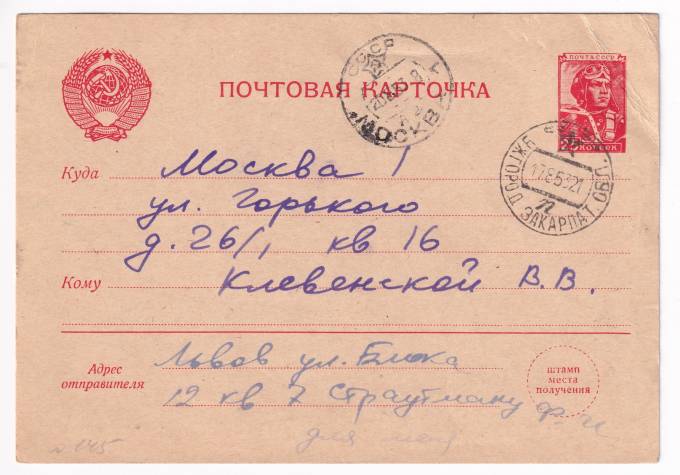 ПОЧТОВАЯ КАРТОЧКА
СССР
МОСКВА
ПОЧТА СССР
25 КОПЕЕК
УЖГОРОД ЗАКАРПАТ. ОБЛ.
17 8 53 21
Куда Москва 1
ул. Горького
д. 26/1, кв 16
Кому Клевенской В.В.
Адрес отправителя
Львов ул. Блюка
12 кв 7 Страутману Ф. И
для меня
штамп места получения
№ 145